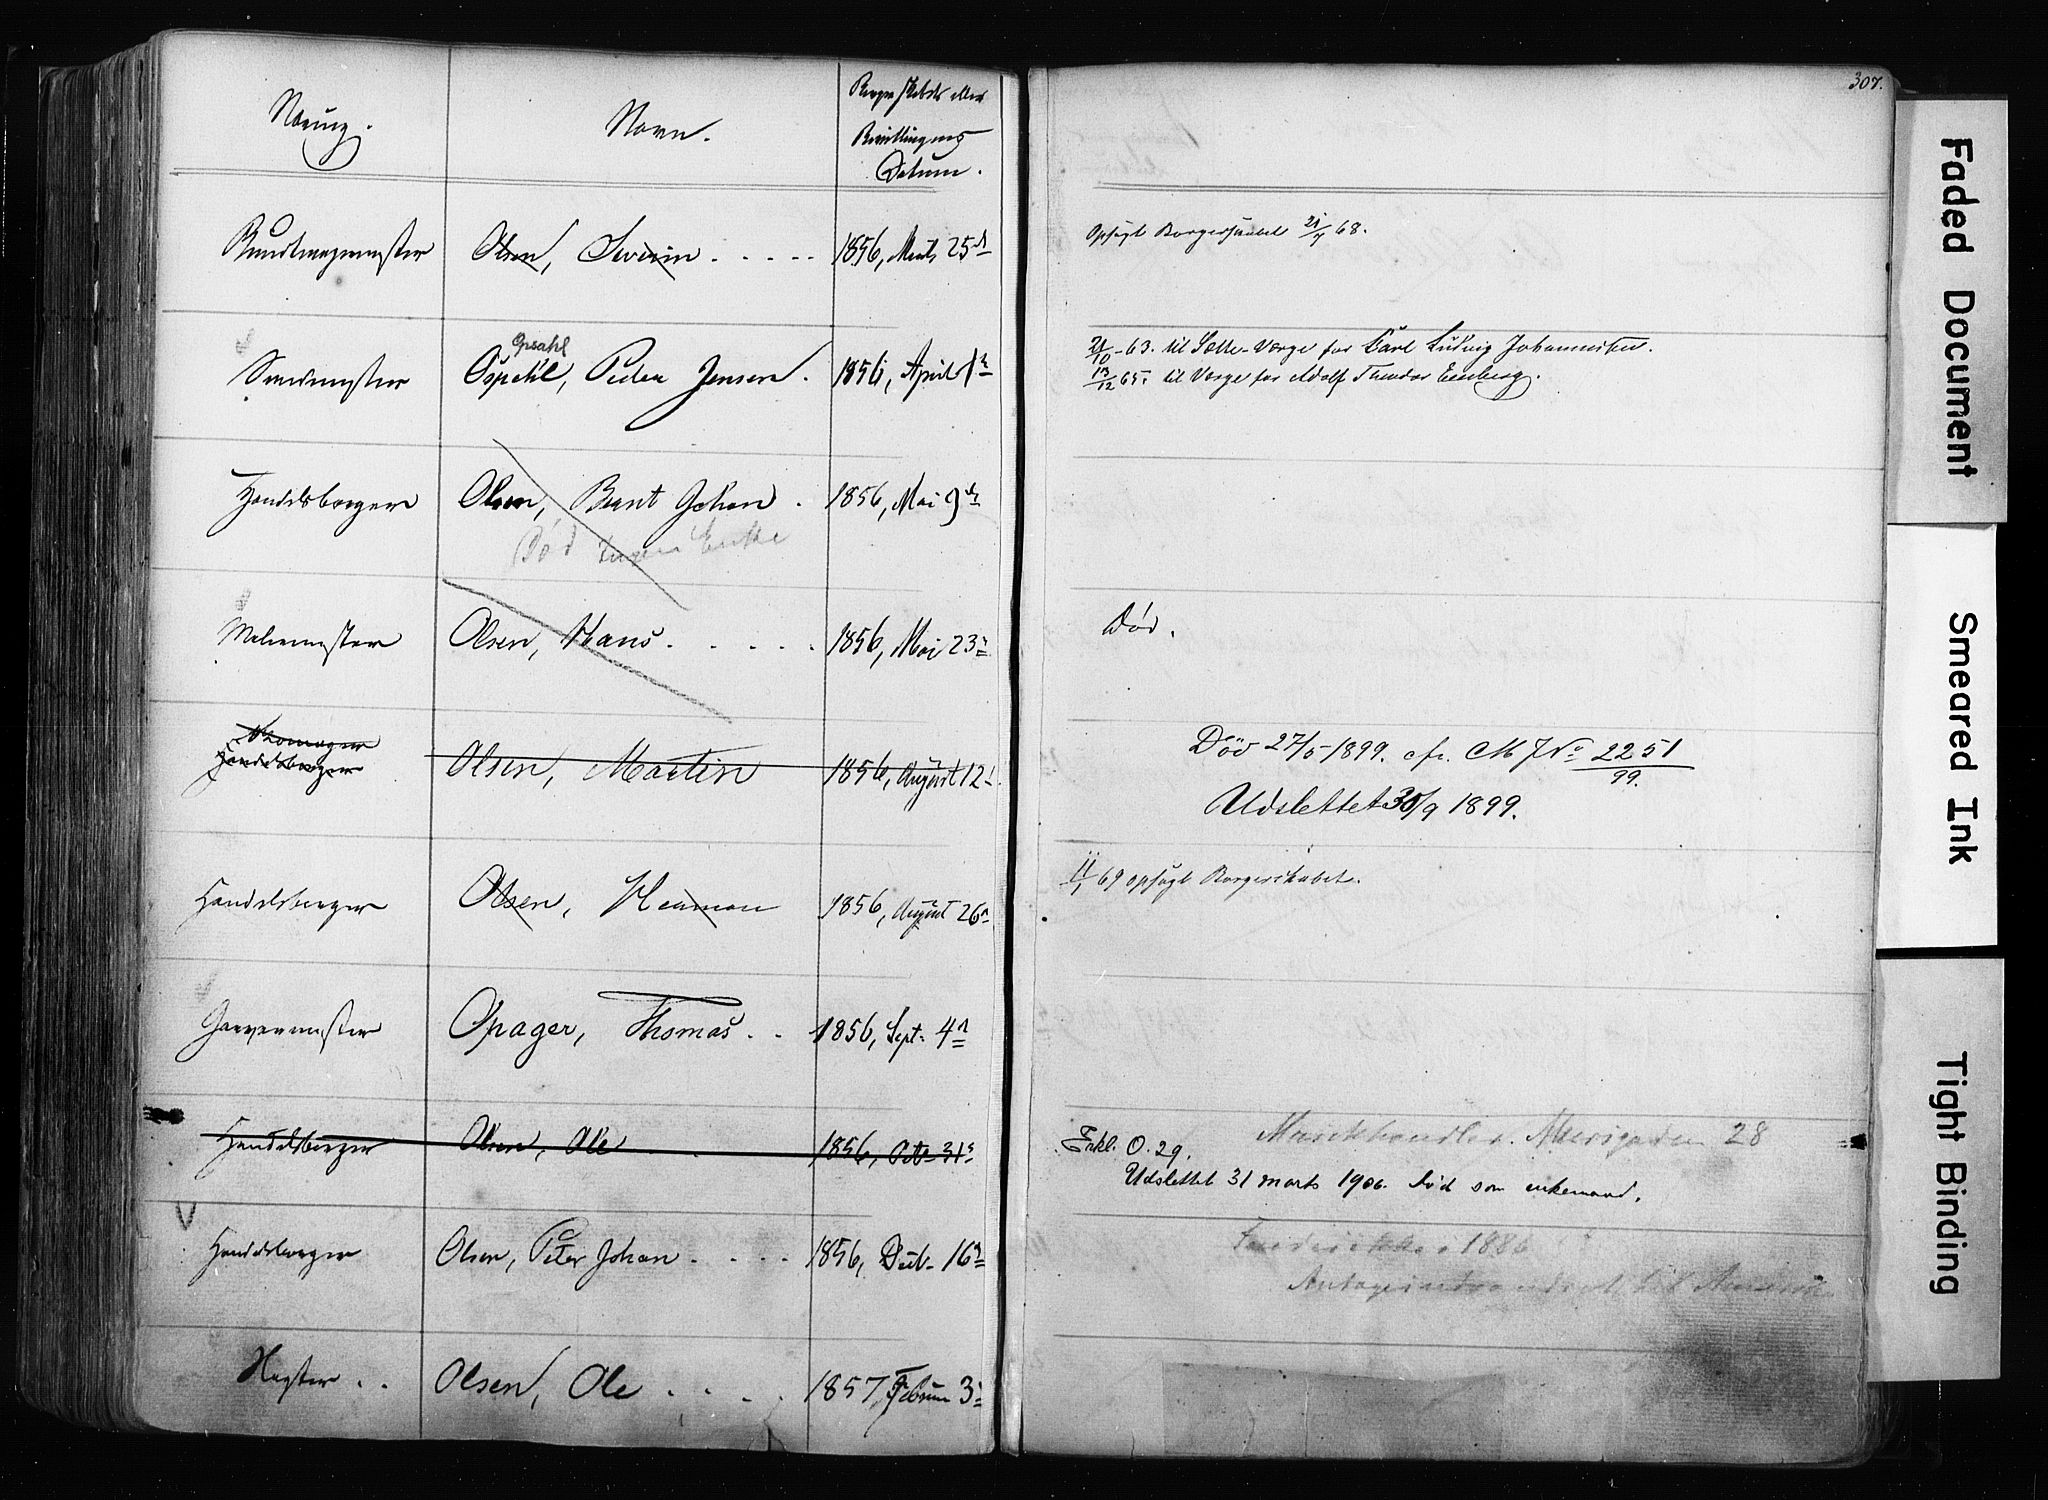 307.
Næring. Navn. Borgerskabets eller
Bevillingens
Datum.
Buntmagermester Olsen, Severin . . . . . 1856, Marts 25de
Opsagt Borgerskabet 21/7 68.
Opsahl
Smedmester Ospahl, Peder Jensen . 1856, April 1ste
21/10 - 63. til Sætte-Værge for Carl Ludvig Johannesen.
13/12 65. til Værge for Adolf Theodor
Handelsborger Olsen, Bernt Johan . 1856, Mai 9de
Død Ingen Enke
Malermester Olsen, Hans . . . . . 1856, Mai 23de
Død.
Handelsborger Olsen, Martin 1856, August 12te
Død 27/5 1899. cfr. M J No 2251/99.
Udslettet 30/9 1899.
Handelsborger Olsen, Herman 1856, August 26de
11/1 69 opsagt Borgerskabet.
Garvermester Opager, Thomas . . 1856, Sept. 4de
Handelsborger Olsen, Ole . . 1856, Octb. 31te
Enkl. O. 29. 28
Udslettet 31 marts 1906. død som enkemand.
Handelsborger Olsen, Peter Johan . . . . 1856, Decb. 16de
1886
til
Høker . . Olsen, Ole . . . . 1857, Februar 3die
Faded Document
Smeared Ink
Tight Binding